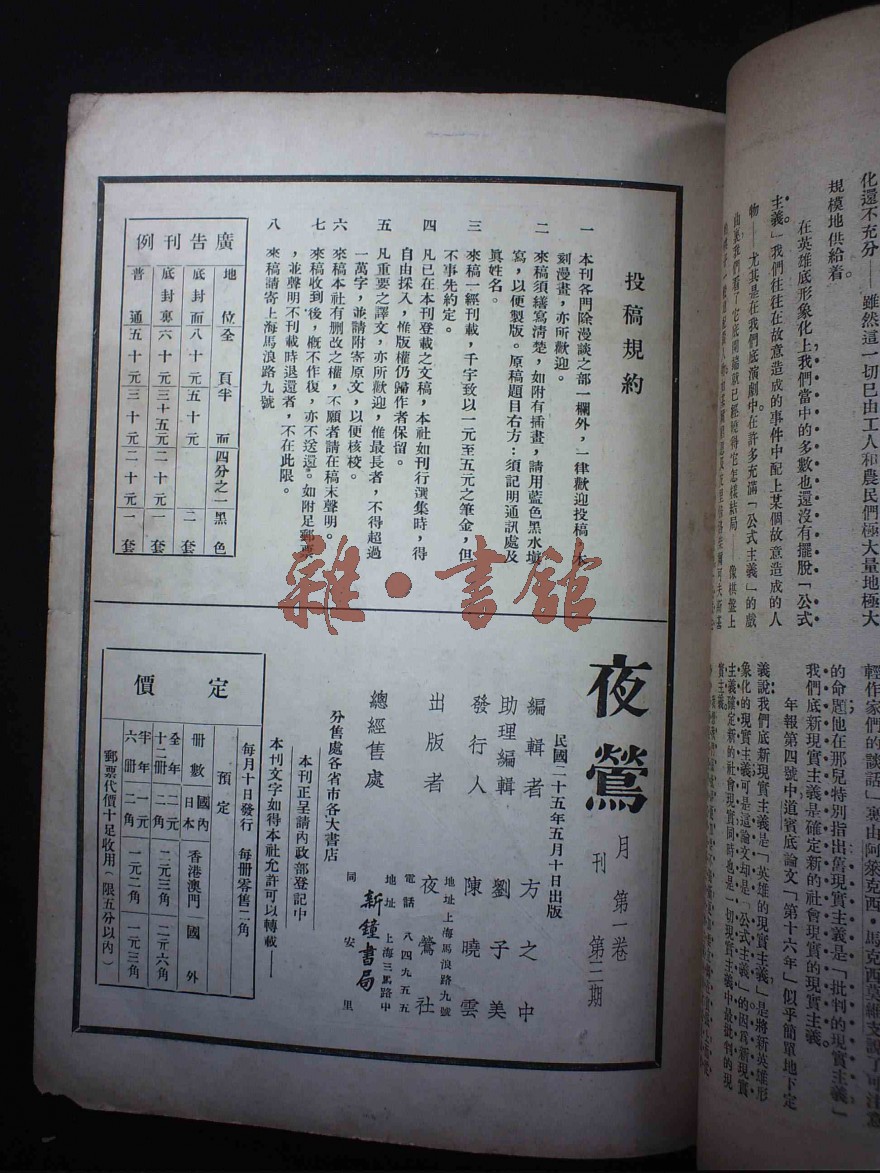 化還不充分——雖然這一切已由工人和農民們極大量地極大
規模地供給着。
在英雄底形象化上我們當中的多數也還沒有擺脫「公式
主義」。我們往往在故意造成的事件中配上某個故意造成的人
物——尤其是在我們底演劇中。在許多充滿「公式主義」的戲
輕作家們的談話」裏由阿萊克西・馬克西莫維支說了可注意
的命題他在那兒特別指出舊現實主義是「批判的現實主義」
我們底新現實主義是確定新的社會現實的現實主義。
年報第四號中道賓底論文「第十六年」似乎簡單地下定
義說我們底新現實主義是「英雄的現實主義」是將新英雄形
象化的現實主義可是這論文却是「公式主義」的因爲新現實
主義確定新的社會現實同時也是一切現實主義中最批判的現
實主義。
投稿規約
一 本刊各門除漫談之部一欄外,一律歡迎投稿,木
刻漫畫,亦所歡迎。
二 來稿須繕寫清楚,如附有插畫,請用藍色黑水填
寫,以便製版。原稿題目右方:須記明通訊處及
眞姓名。
三 來稿一經刊載,千字致以一元至五元之筆金,但
不事先約定。
四 凡已在本刊登載之文稿,本社如刊行選集時,得
自由採入,惟版權仍歸作者保留。
五 凡重要之譯文,亦所歡迎,惟最長者,不得超過
一萬字,並請附寄原文,以便核校。
六 來稿本社有删改之權,不願者請在稿末聲明。
七 來稿收到後,概不作復,亦不送還。如附足郵票
,並聲明不刊載時退還者,不在此限。
八 來稿請寄上海馬浪路九號
廣告刊例
地位 全頁 半面 四分之一 黑色
底封面 八十元 五十元 二套
底封裏 六十元 三十五元 二十元 一套
普通 五十元 三十元 二十元 一套
雜・書館
夜鶯
月刊 第一卷 第三期
民國二十五年五月十日出版
編輯者 方之中
助理編輯 劉子美
發行人 陳曉雲
地址 上海馬浪路九號
出版者 夜鶯社
電話 八四九五五
地址 上海三馬路中
總經售處 新鐘書局
同安里
分售處各省市各大書店
本刊正呈請內政部登記中
本刊文字如得本社允許可以轉載
定價
每月十日發行 每冊零售二角
預定
冊數 國內日本 香港澳門 國外
全年十二冊 二元二角 二元三角 二元六角
半年六冊 一元二角 一元二角 一元三角
郵票代價十足收用(限五分以內)